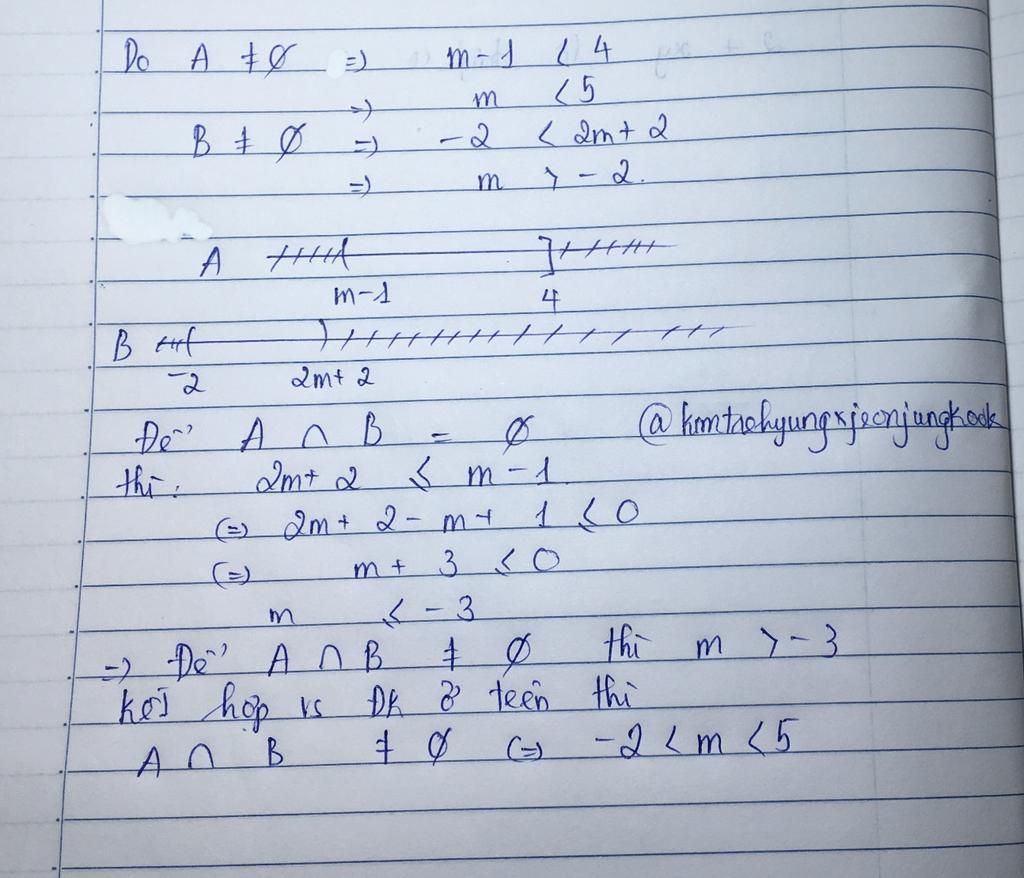 Do A ≠ ∅ => m-1 < 4
=> m < 5
B ≠ ∅ => -2 < 2m+2
=> m > -2.
A ( ]
m-1 4
B ( )
-2 2m+2
Để A ∩ B = ∅ @kimtaehyungxjeonjungkook
thì: 2m+2 ≤ m-1
(=) 2m+2-m+1 ≤ 0
(=) m+3 ≤ 0
m ≤ -3
=> Để A ∩ B ≠ ∅ thì m > -3
Kết hợp vs ĐK ở trên thì
A ∩ B ≠ ∅ (=) -2 < m < 5